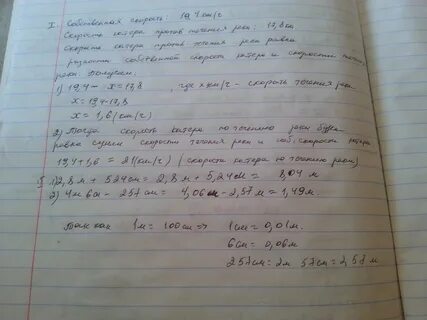 I. Собственная скорость: 19,4 км/ч
Скорость катера против течения реки: 17,8 км
Скорость катера против течения реки равна
разности собственной скорости катера и скорости
реки. Получаем.
1) 19,4 - x = 17,8, где x км/ч - скорость течения реки
x = 19,4-17,8
x = 1,6 (км/ч)
2) Тогда скорость катера по течению реки будет
равна сумме скорости течения реки и соб. скорости катера
19,4+1,6 = 21 (км/ч) (скорость катера по течению реки)
1) 2,8м + 524см = 2,8 м + 5,24м = 8,04 м
2) 4м 6см - 257см = 4,06м - 2,57м = 1,49м.
Так как 1м = 100см => 1см = 0,01м.
6см = 0,06м
257см = 2м 57см = 2,57м